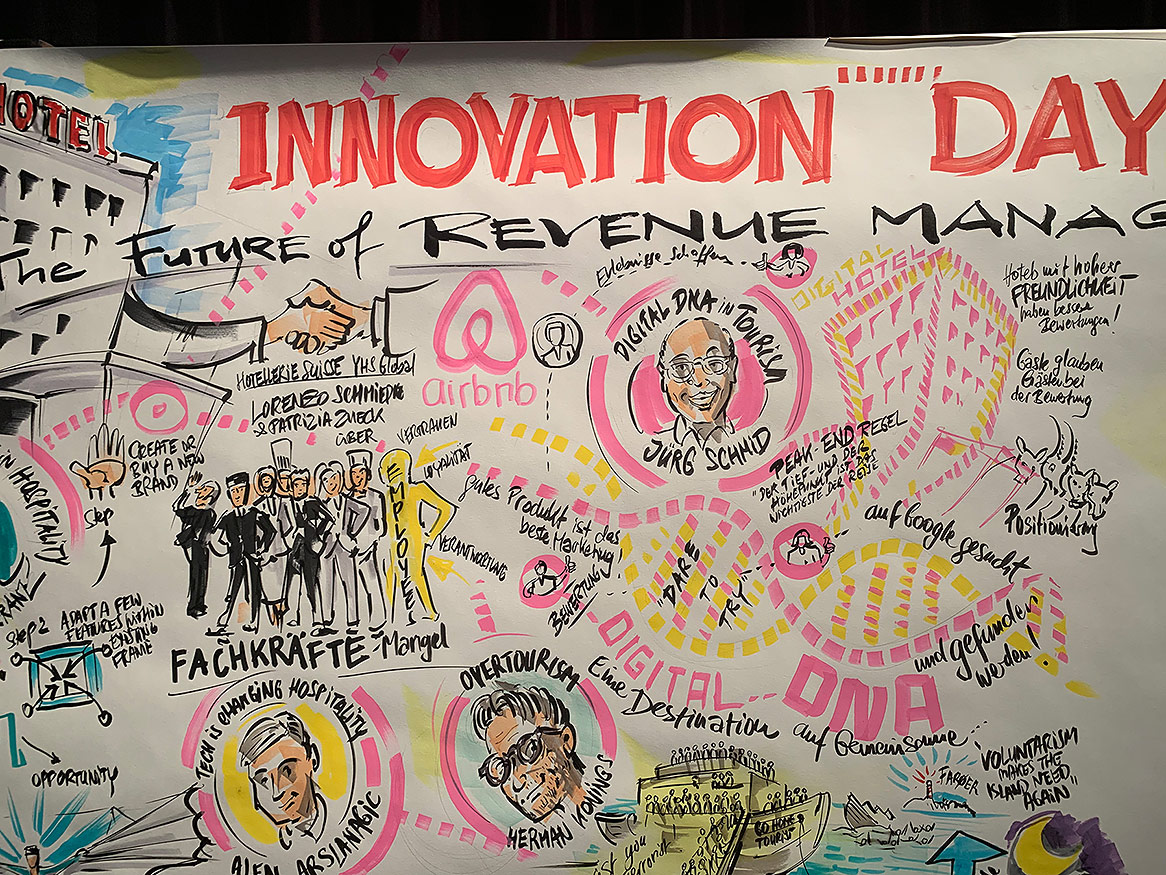 HOTEL
INNOVATION DAY
The Future of REVENUE MANAG
Erlebnisse schaffen..
DIGITAL
HOTEL
Hotels mit hoher
FREUNDLICHKEIT
haben bessere
Bewertungen!
Gäste glauben
Gästen bei
der Bewertung
Positionierung
HOTELLERIE SUISSE YHS Global
LORENZO SCHMIEDKE
& PATRIZIA ZUECK
ÜBER
airbnb
DIGITAL DNA in TOURISM
JÜRG SCHMID
CREATE OR
BUY A NEW
BRAND
Step
IN HOSPITALITY
FRANZ
Step 2
ADAPT A FEW
FEATURES WITHIN
EXISTING
FRAME
OPPORTUNITY
VERTRAUEN
LOYALITÄT
VERANTWORTUNG
EMPLOYEE
FACHKRÄFTE-Mangel
gutes Produkt ist das
beste Marketing!
BEWERTUNG
PEAK-END REGEL
"DER TIEF- UND DER
HÖHEPUNKT IST DAS
WICHTIGSTE DER REISE
"DARE
TO
TRY"
auf Google gesucht
und gefunden
werden!
DIGITAL... DNA
TECH is CHANGING HOSPITALITY
ALEN ARSLANAGIC
OVERTOURISM
HERMAN KONINGS
Eine Destination auf Gemeinsame
GO HOME
TOURIST
ist you
terrorist
FARÖER
"VOLUNTARISM
MAKES THE
ISLAND NEED
AGAIN"